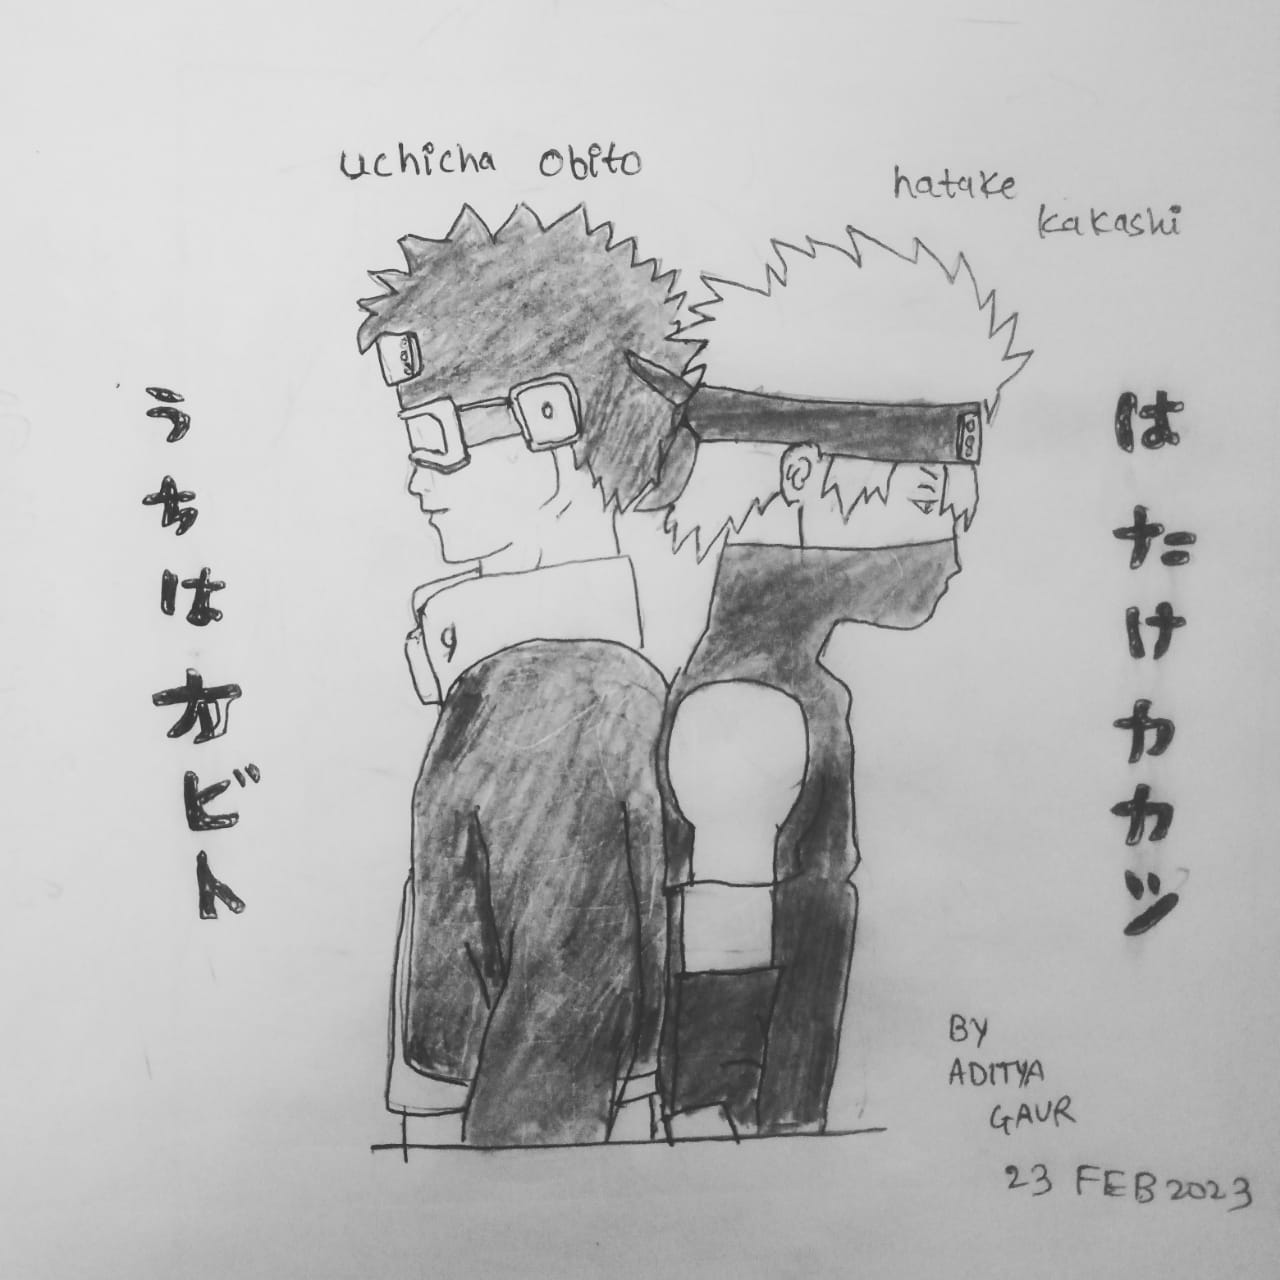 uchicha obito
hatake
kakashi
うちはオビト
はたけカカツ
BY
ADITYA
GAUR
23 FEB 2023